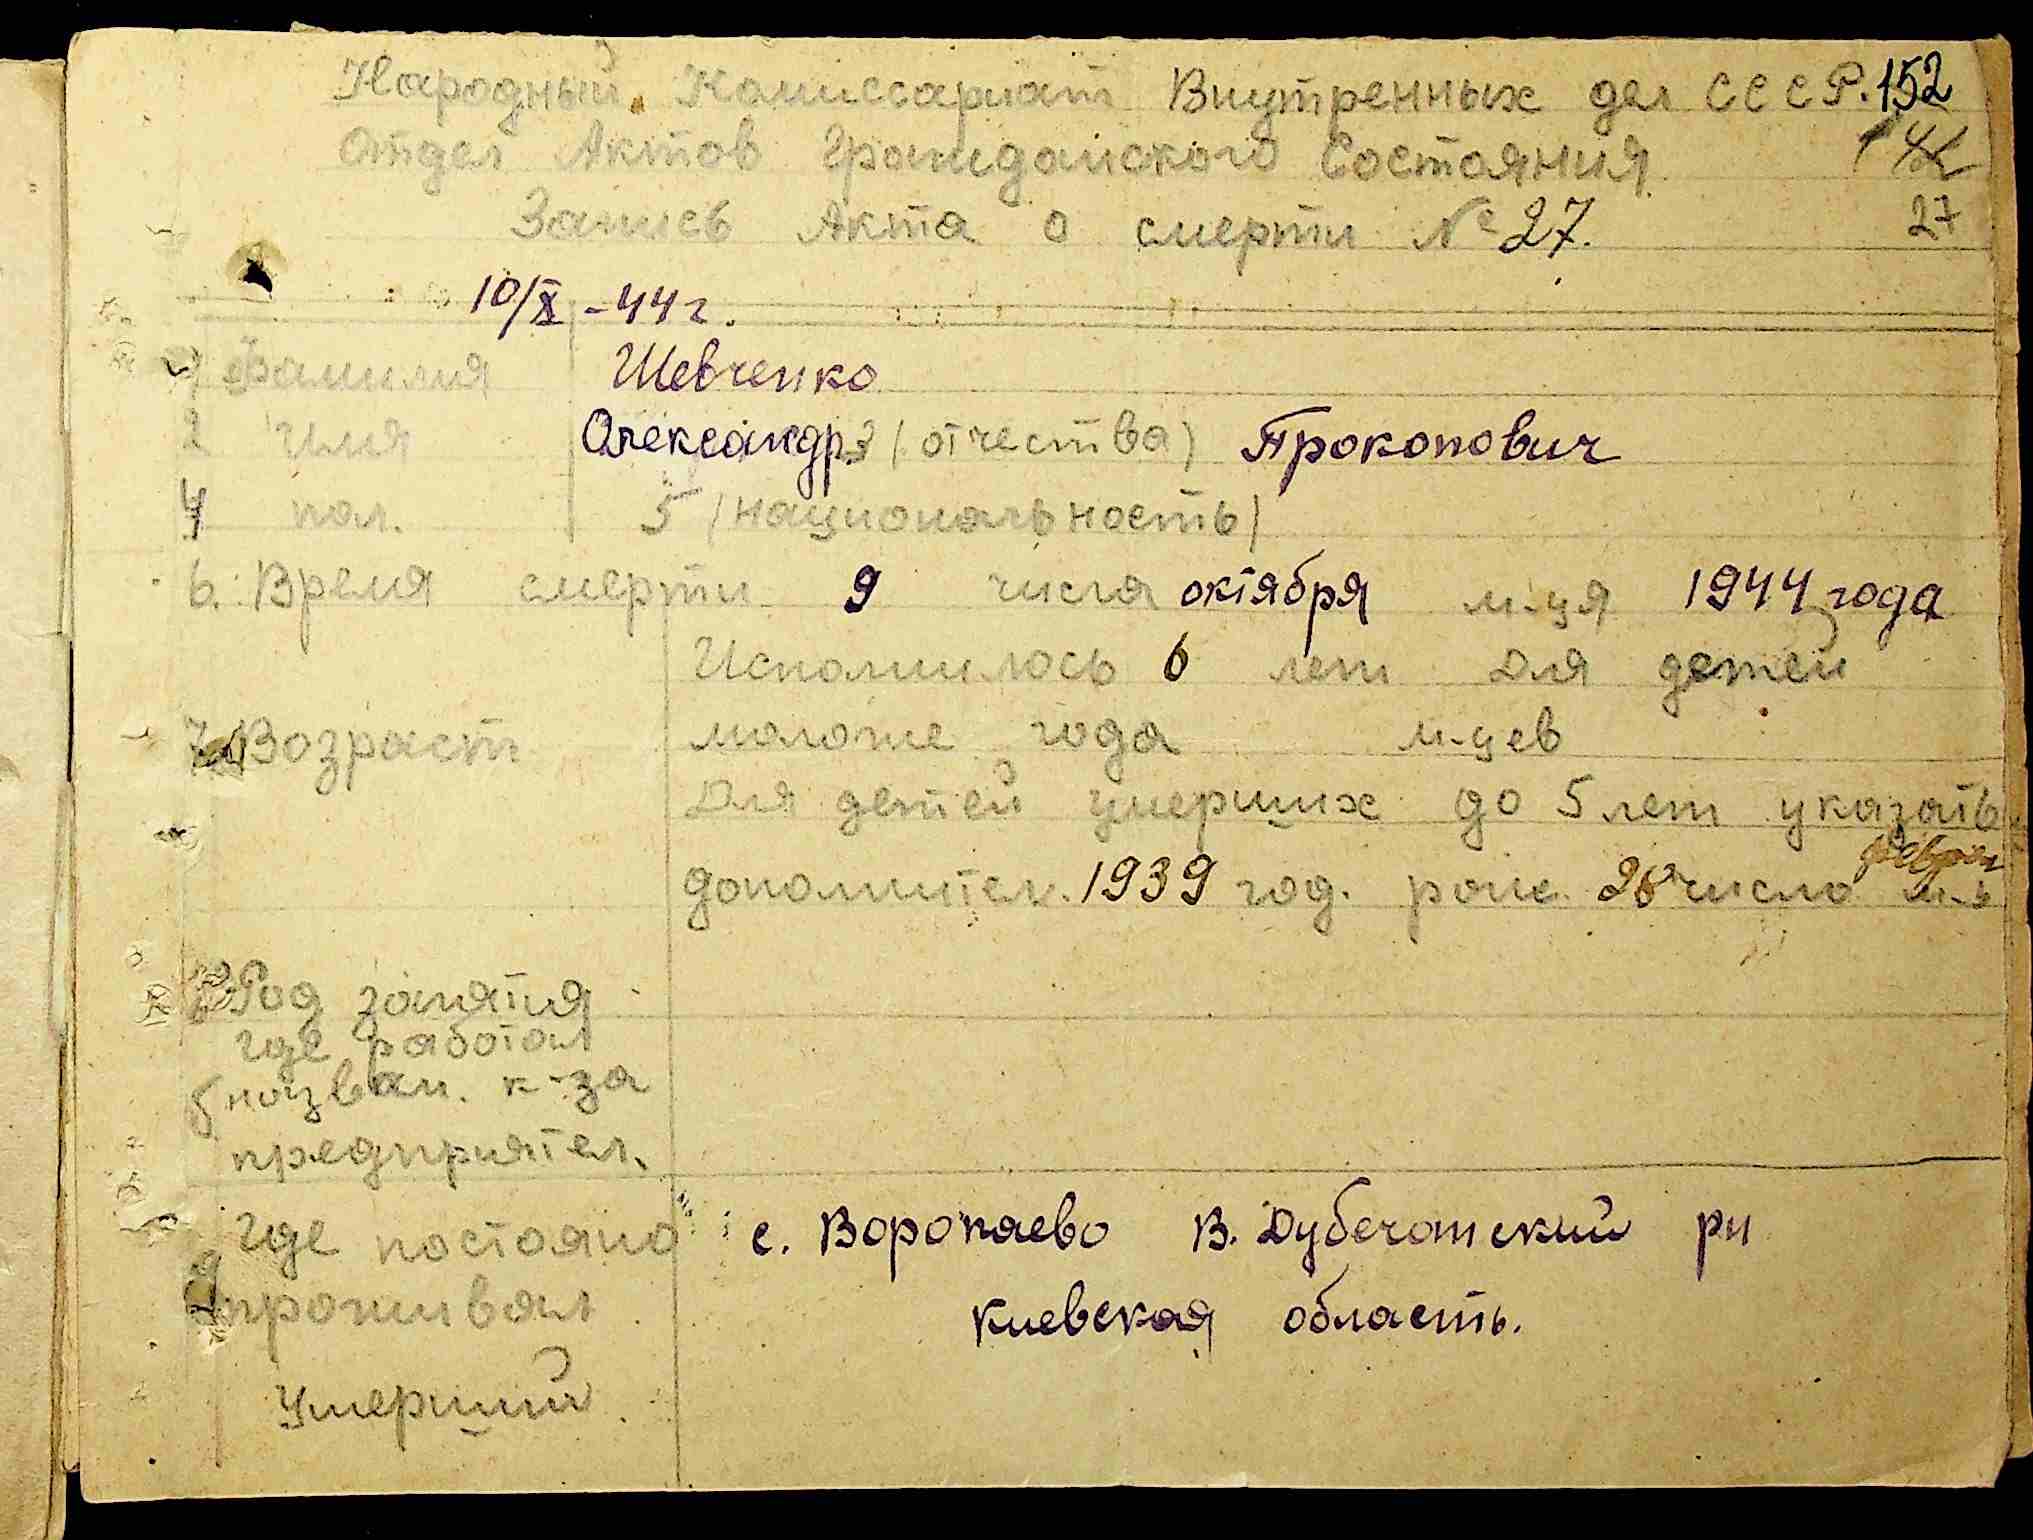 Народный Комиссариат Внутренных дел СССР. 152
Отдел Актов Гражданского Состояния 42
Запись Акта о смерти № 27. 27
10/X - 44 г.
1 Фамилия Шевченко
2 Имя Олександр 3 (отчества) Прокопович
4 пол. 5 (национальность)
6. Время смерти 9 числа октября м-ця 1944 года
Исполнилось 6 лет Для детей
7 Возраст моложе года м-цев
Для детей умерших до 5 лет указать
феврал
дополнител. 1939 год. рож. 28 число м-ь
Род занятия
где работал
б назван. к-за
предприятел.
где постояно с. Воропаево В. Дубечанский рн
9 проживал Киевская область.
Умерший